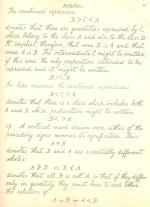 Notation
The combined expression
B > C < A
denotes that there are quantities expressed by C
which belong to the class A and also to the class B.
It implies, therefore, that some B is A and that
some A is B. The intermediate C might be omitted,
if this were the only proposition intended to be
expressed and it might be written
B > < A
In like manner the combined expressions
B < C > A
denotes that there is a class which includes both
A and B which proposition might be written
B < > A
A vertical mark drawn over either of the
preceding signs removes its signification.
denotes that A and B are essentially different
wholes.
denotes that all B is not A, so that if they differ
only in quantity they must bear to each other
the relation of
A = B or A < B